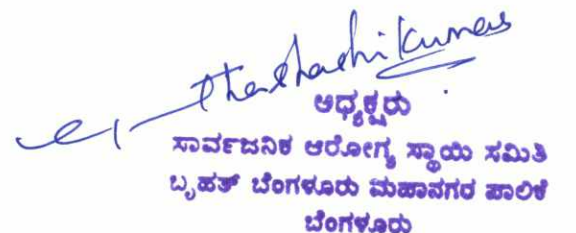 ಅಧ್ಯಕ್ಷರು
ಸಾರ್ವಜನಿಕ ಆರೋಗ್ಯ ಸ್ಥಾಯಿ ಸಮಿತಿ
ಬೃಹತ್ ಬೆಂಗಳೂರು ಮಹಾನಗರ ಪಾಲಿಕೆ
ಬೆಂಗಳೂರು